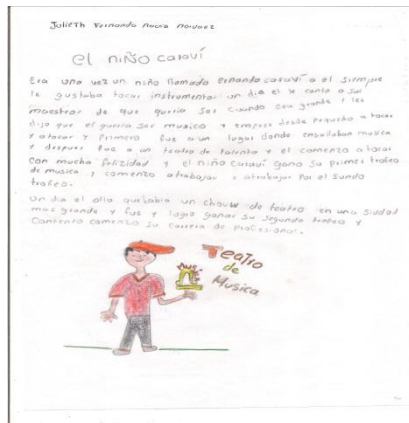 Julieth Fernanda
el niño caraví
Era una vez un niño llamado ernando caraví a el siempre
le gustaba tocar instrumentos un dia el le conto a sus
maestras de que queria ser cuando sea grande y les
dijo que el queria ser musico y empeso desde pequeño a tocar
y atocar y Primero fue a un lugar donde ensallaban musica
y despues fue a un teatro de talento y el comenzo a tocar
con mucha felizidad y el niño caraví gano su primer trofeo
de musica y comenzo atrabajar y atrabajar Por el sundo
trofeo.
Un dia el ollo que abia un chouw de teatro en una siudad
mas grande y fue y logro ganar su segundo trofeo y
contento comenzo su carrera de profesional.
Teatro
de
Musica